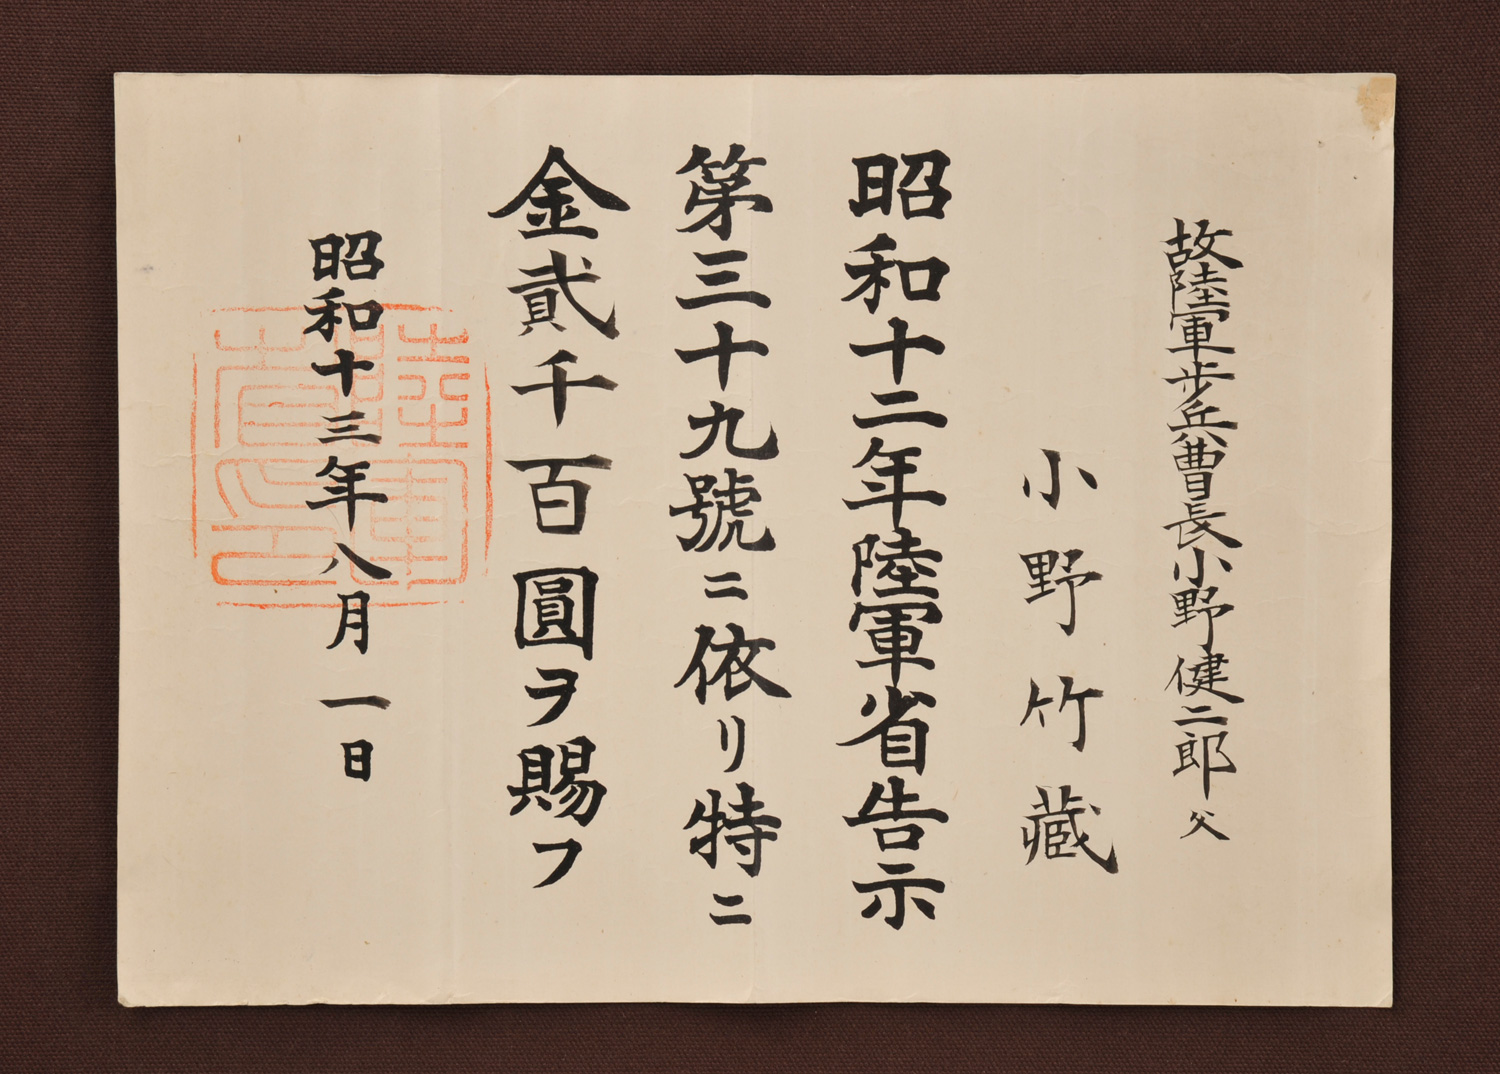 故陸軍歩兵曹長小野健二郎父
小野竹藏
昭和十二年陸軍省告示
第三十九號ニ依リ特ニ
金貳千百圓ヲ賜フ
昭和十三年八月一日
陸軍省印